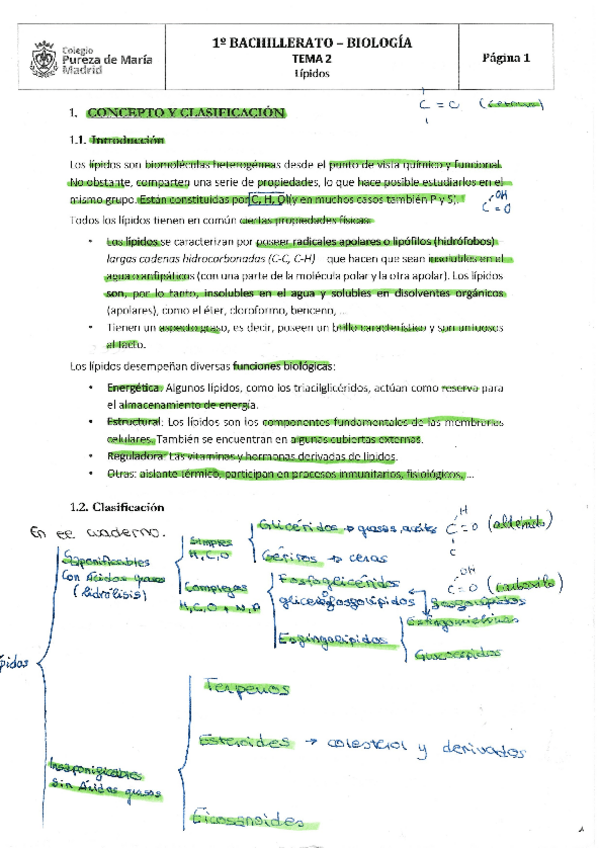 Colegio
Pureza de María
Madrid
1º BACHILLERATO – BIOLOGÍA
TEMA 2
Lípidos
Página 1
C = O
1. CONCEPTO Y CLASIFICACIÓN
1.1. Introducción
Los lípidos son biomoléculas heterogéneas desde el punto de vista químico y funcional.
No obstante, comparten una serie de propiedades, lo que hace posible estudiarlos en el
mismo grupo. Están constituidas por C, H, O (y en muchos casos también P y S).
OH
C = O
Todos los lípidos tienen en común ciertas propiedades físicas:
• Los lípidos se caracterizan por poseer radicales apolares o lipófilos (hidrófobos)
largas cadenas hidrocarbonadas (C-C, C-H) que hacen que sean insolubles en el
agua o anfipáticos (con una parte de la molécula polar y la otra apolar). Los lípidos
son, por lo tanto, insolubles en el agua y solubles en disolventes orgánicos
(apolares), como el éter, cloroformo, benceno, ...
• Tienen un aspecto graso, es decir, poseen un brillo característico y son untuosos
al tacto.
Los lípidos desempeñan diversas funciones biológicas:
• Energética: Algunos lípidos, como los triacilglicéridos, actúan como reserva para
el almacenamiento de energía.
• Estructural: Los lípidos son los componentes fundamentales de las membranas
celulares. También se encuentran en algunas cubiertas externas.
• Reguladora: Las vitaminas y hormonas derivadas de lípidos.
• Otras: aislante térmico, participan en procesos inmunitarios, fisiológicos, ...
1.2. Clasificación
En el cuaderno.
Saponificables
Con Ácidos grasos
(hidrólisis)
Simples
H, C, O
Glicéridos → grasas, aceites
Céridos → ceras
H
C = O (aldehído)
C
Complejos
H, C, O + N, P
Fosfoglicéridos
o
glicerofosfolípidos
fosfolípidos
OH
C = O (carboxilo)
Esfingolípidos
Esfingomielinas
lípidos
Insaponificables
Sin Ácidos grasos
Terpenos
Esteroides → colesterol y derivados
Eicosanoides